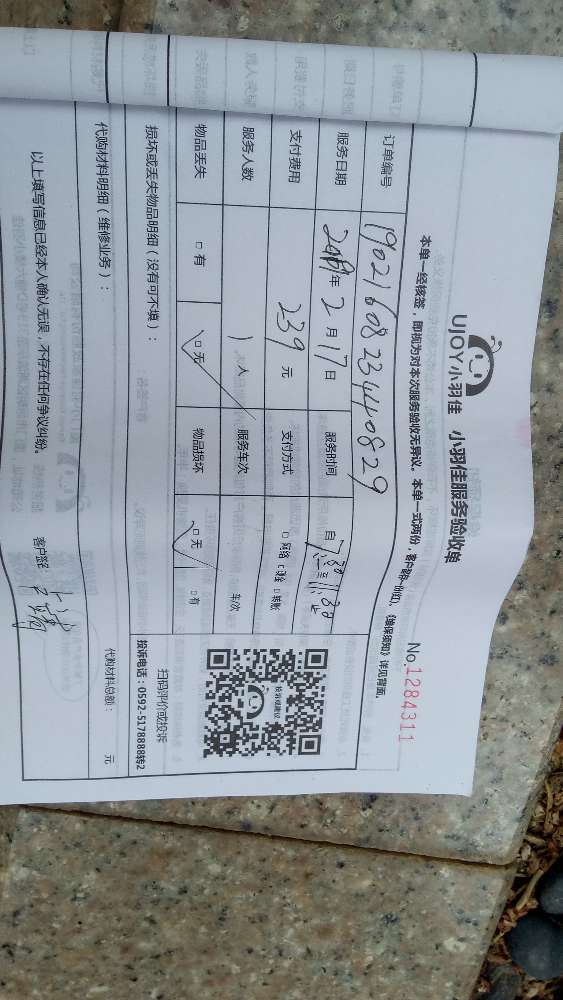 UJOY小羽佳 小羽佳服务验收单
No.1284311
本单一经核签，即视为对本次服务验收无异议。本单一式两份，客户留一份(红)，《维保须知》详见背面。
订单编号 1902160823440829
服务日期 2019年2月17日 服务时间 自7:30至11:30止
支付费用 239元 支付方式 □网络 □现金 □转账
服务人数 1人 服务车次 车次
物品丢失 □有 □无 物品损坏 □无 □有
损坏或丢失物品明细（没有可不填）：
扫码评价或投诉
投诉电话：0592-5178888转2
投诉或建议
代购材料明细（维修业务）：
代购材料总额： 元
以上填写信息已经本人确认无误，不存在任何争议纠纷。 客户签：